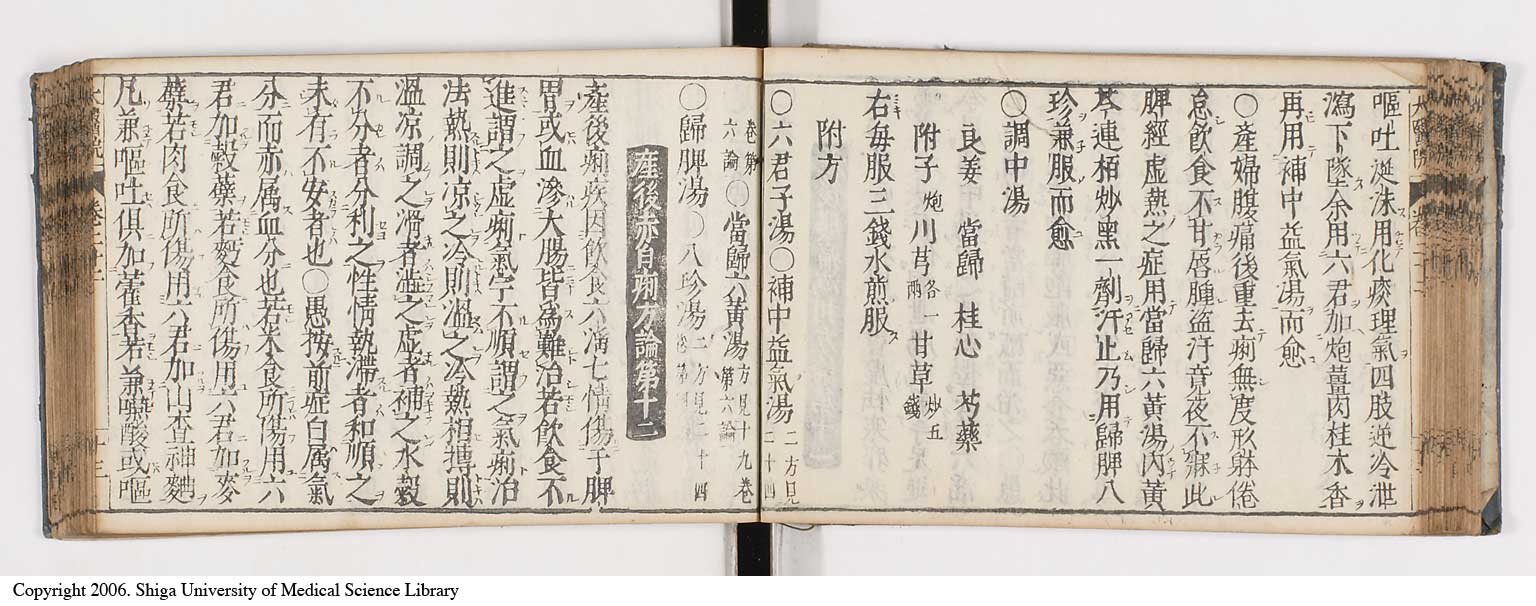 嘔吐涎沫用化痰理氣四肢逆冷泄
瀉下墜余用六君加炮薑肉桂木香
再用補中益氣湯而愈
○產婦腹痛後重去痢無度形躰倦
怠飲食不甘唇腫盗汗竟夜不寐此
脾經虚熱之症用當歸六黃湯内黃
芩連栢炒黑一劑汗止乃用歸脾八
珍兼服而愈
○調中湯
良姜 當歸 桂心 芍藥
附子炮 川芎各一兩 甘草炒五錢
右每服三錢水煎服
附方
○六君子湯○補中益氣湯二方見二十四
卷第六論○當歸六黃湯方見十九卷第六論
○歸脾湯○八珍湯二方見二十四卷第
產後赤白痢方論第十二
產後痢疾因飲食六滛七情傷于脾
胃或血滲大腸皆為難治若飲食不
進謂之虚痢氣字不順謂之氣痢治
法熱則凉之冷則温之冷熱相搏則
温凉調之滑者澁之虚者補之水穀
不分者分利之性情執滯者和順之
未有不安者也○愚按前症白属氣
分而赤属血分也若米食所傷用六
君加穀蘖若麪食所傷用六君加麥
蘖若肉食所傷用六君加山査神麯
凡兼嘔吐俱加藿香若兼嚥酸或嘔
Copyright 2006. Shiga University of Medical Science Library